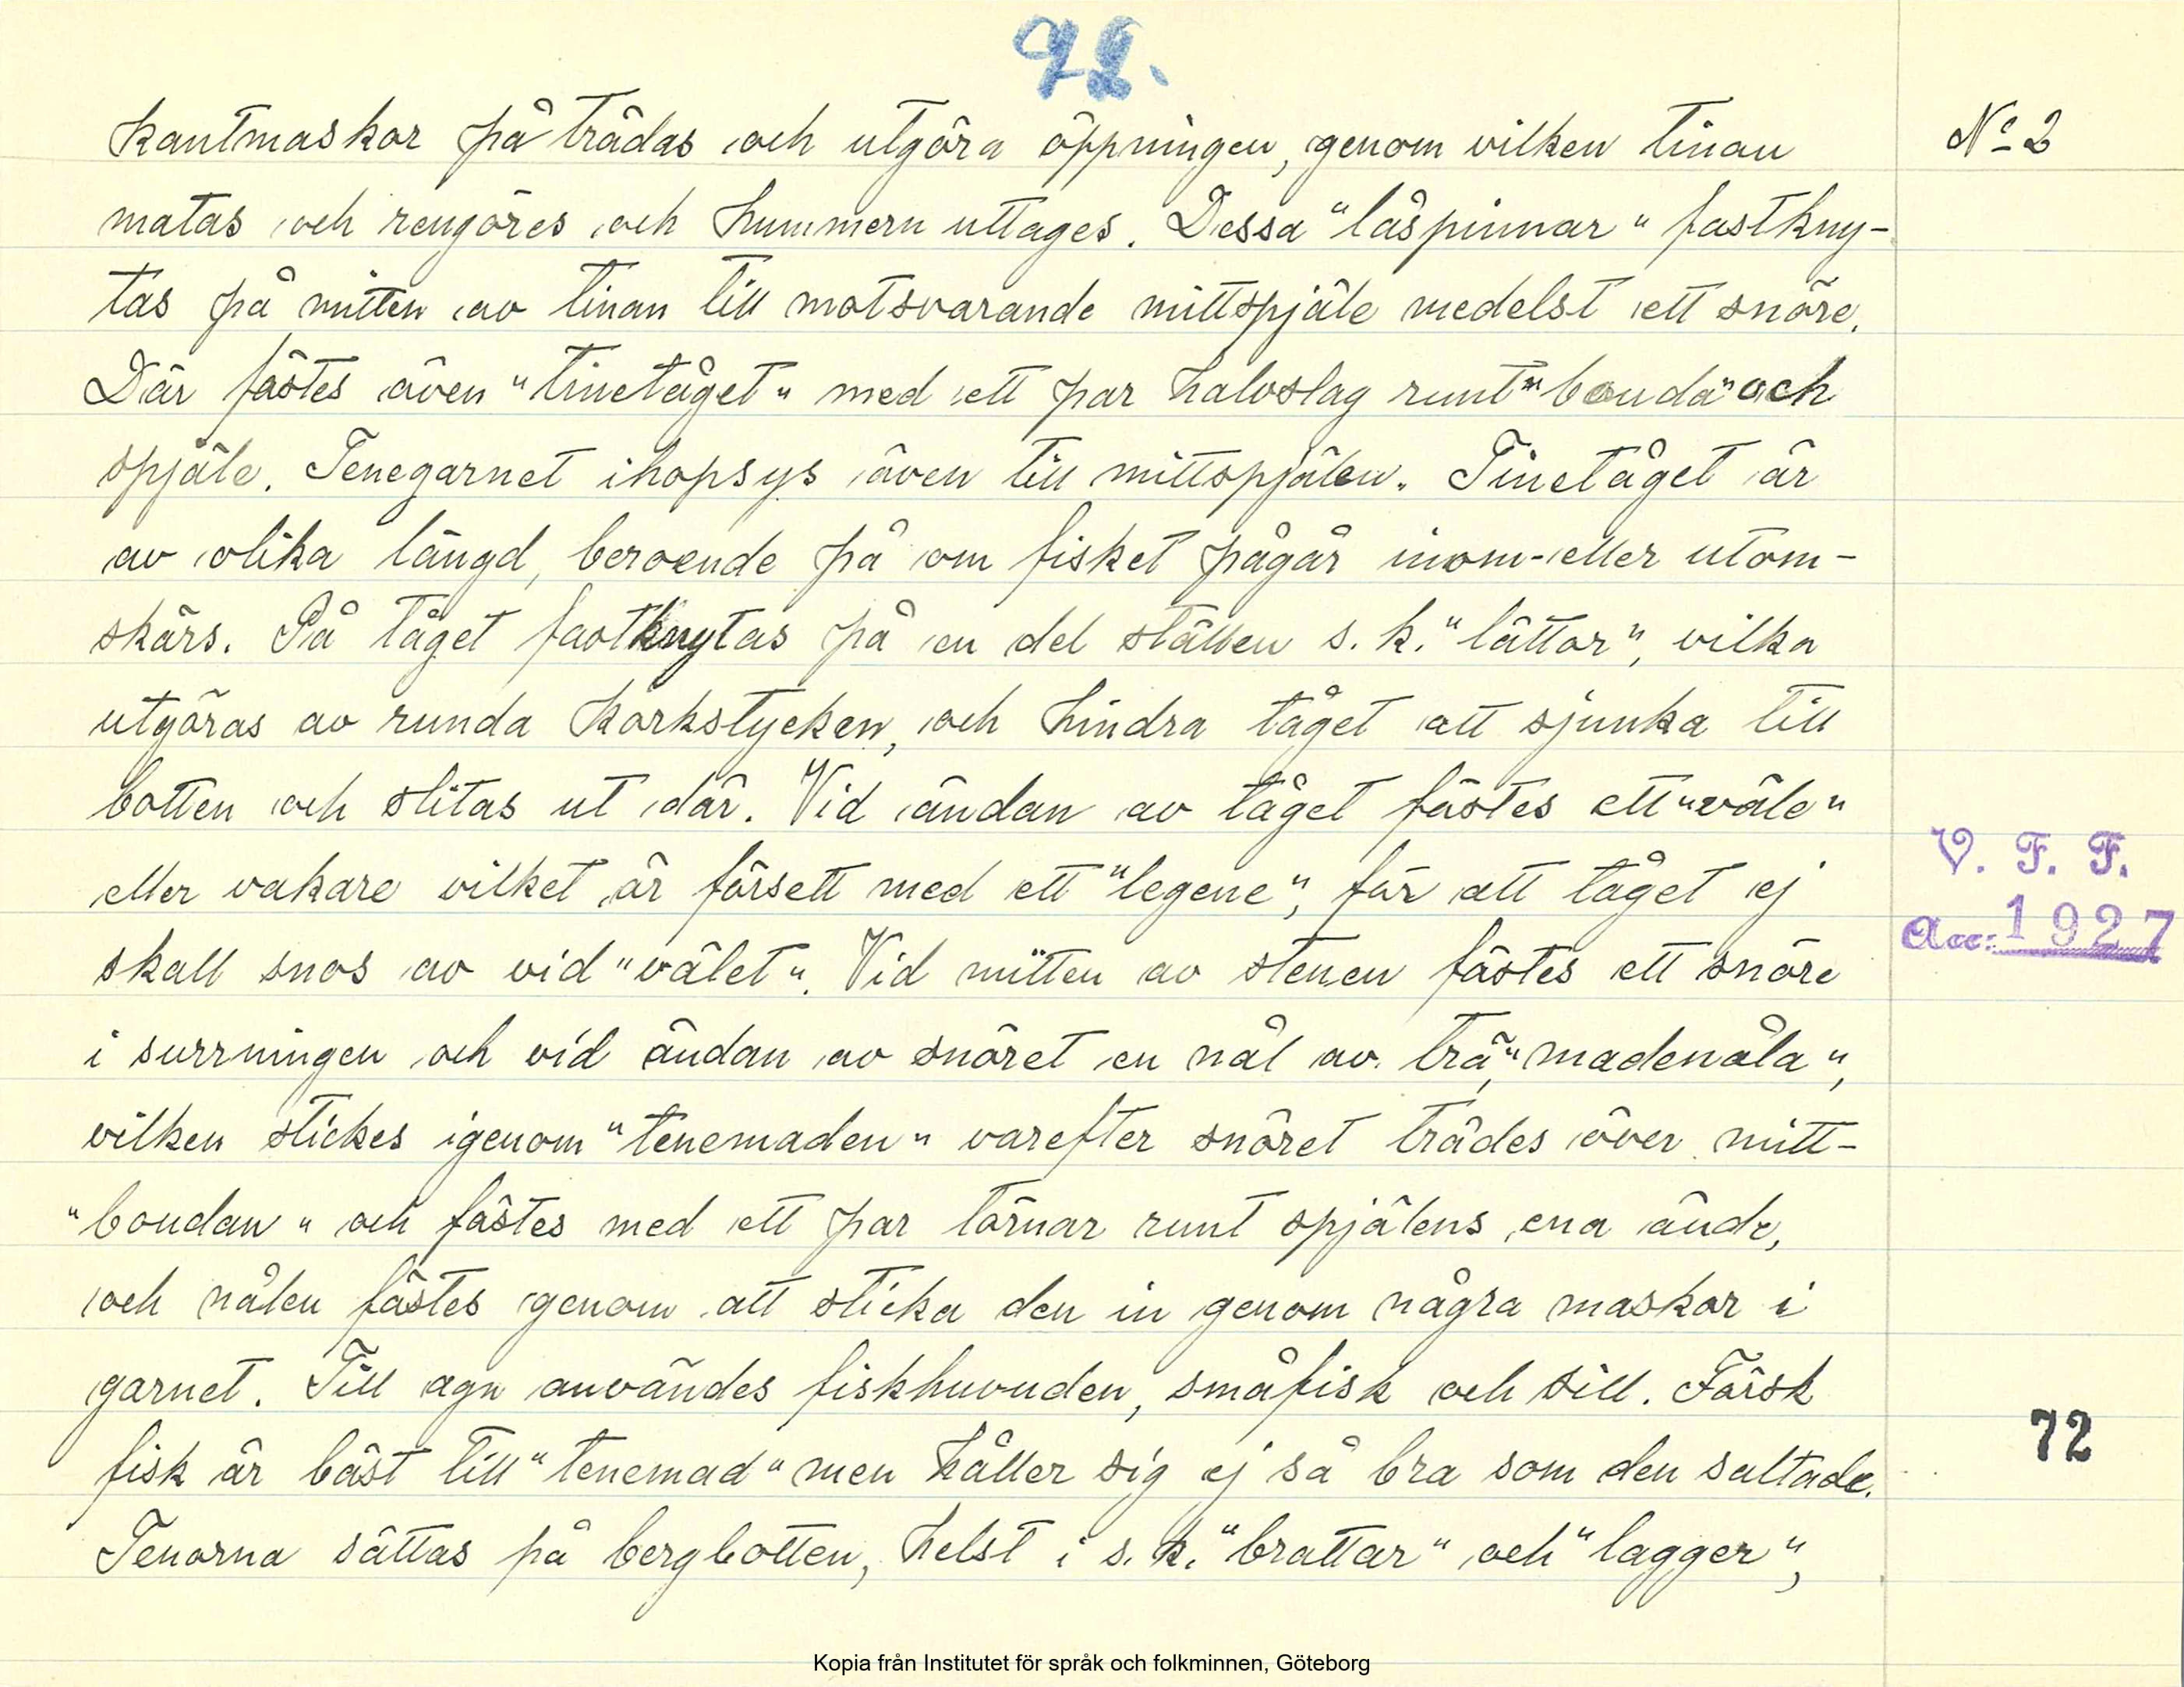 92.
kantmaskor på trådas och utgöra öppningen, genom vilken tinan
N° 2
matas och rengöres och hummern uttages. Dessa "låspinnar" fastkny-
tas på mitten av tinan till motsvarande mittspjäle medelst ett snöre.
Där fästes även "tinetåget" med ett par halvslag runt "bouda" och
spjäle. Tenegarnet ihopsys även till mittspjälen. Tinetåget är
av olika längd, beroende på om fisket pågår inom- eller utom-
skärs. På tåget fastknytas på en del ställen s. k. "lättor", vilka
utgöras av runda korkstycken, och hindra tåget att sjunka till
botten och slitas ut där. Vid ändan av tåget fästes ett "väle"
eller vakare vilket är försett med ett "legene", för att tåget ej
V. F. F.
skall snos av vid "välet". Vid mitten av stenen fästes ett snöre
Acc: 1927
i surrningen och vid ändan av snöret en nål av trä, "madenåla",
vilken stickes igenom "tenemaden" varefter snöret trädes över mitt-
"boudan" och fästes med ett par törnar runt spjälens ena ände,
och nålen fästes genom att sticka den in genom några maskor i
garnet. Till agn användes fiskhuvuden, småfisk och sill. Färsk
fisk är bäst till "tenemad" men håller sig ej så bra som den saltade.
72
Tenorna sättas på bergbotten, helst i s. k. "brattar" och "lagger",
Kopia från Institutet för språk och folkminnen, Göteborg